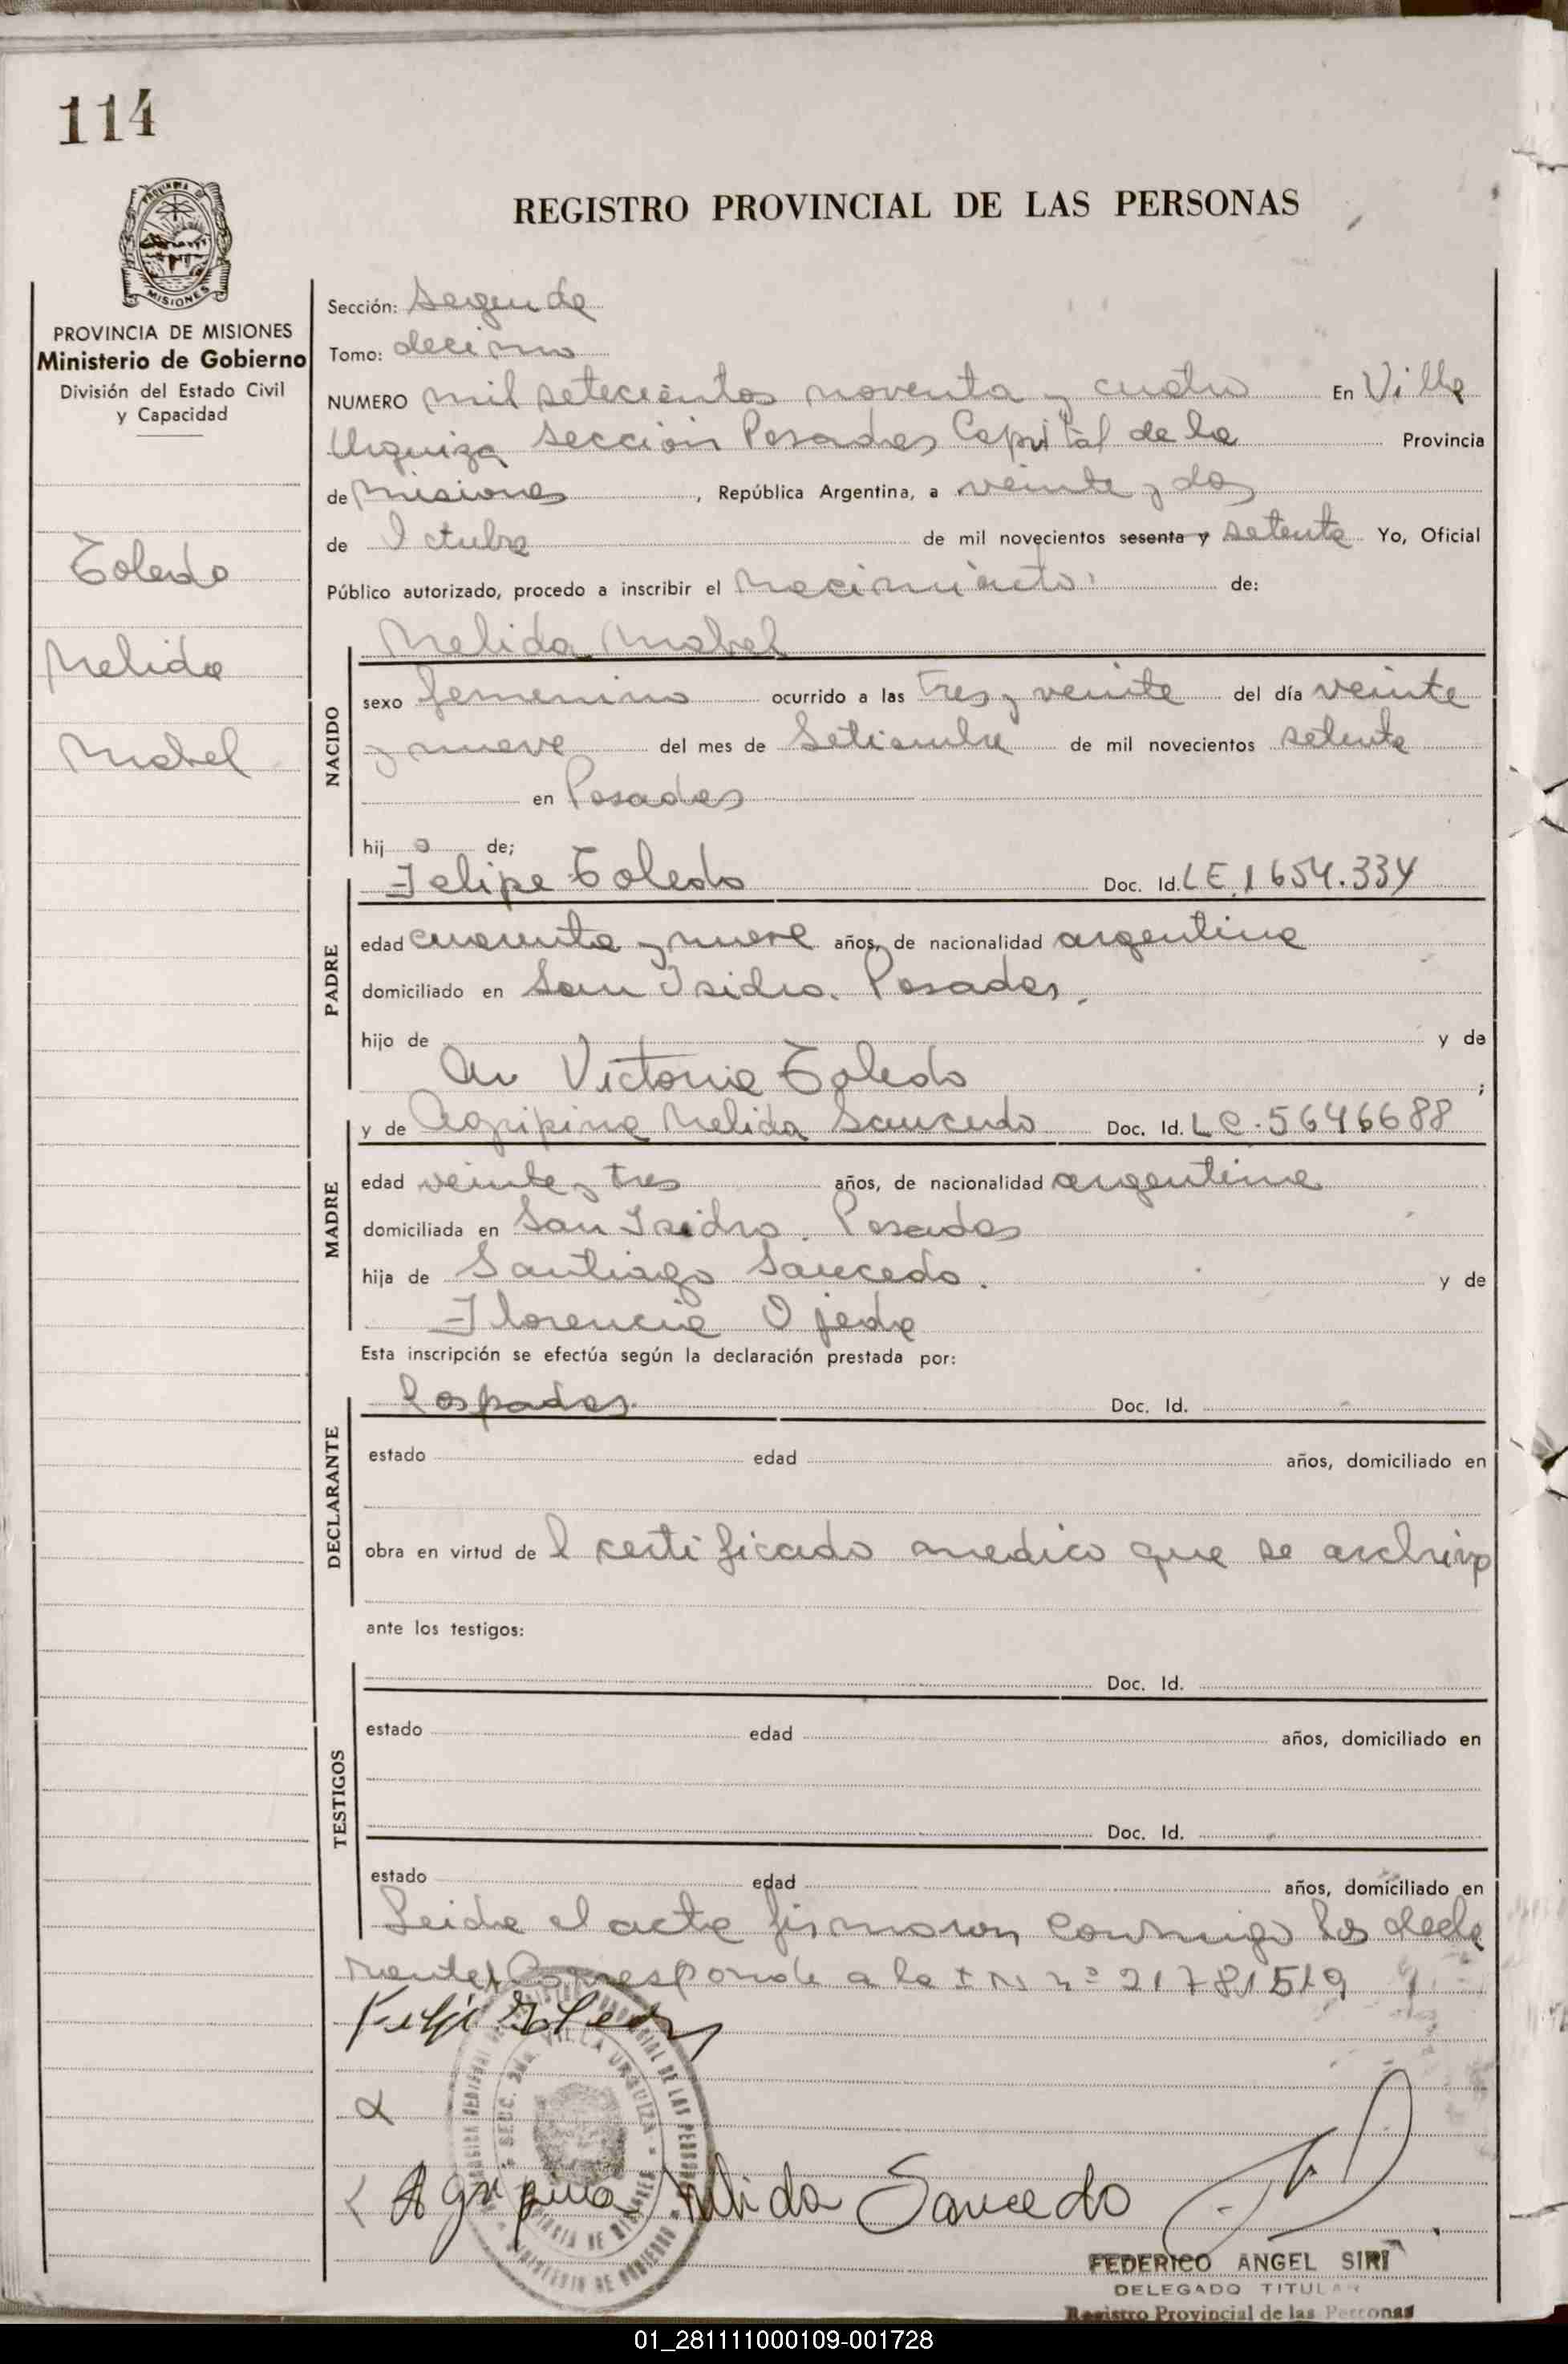 114
REGISTRO PROVINCIAL DE LAS PERSONAS
MISIONES
PROVINCIA DE MISIONES
Ministerio de Gobierno
División del Estado Civil
y Capacidad
Toledo
Nelida
Mabel
Sección: Segunda
Tomo: decimo
NUMERO mil setecientos noventa y cuatro En Villa
Urquiza Sección Posadas Capital de la Provincia
de Misiones, República Argentina, a veinte y dos
de Octubre de mil novecientos sesenta y setenta Yo, Oficial
Público autorizado, procedo a inscribir el nacimiento de:
NACIDO
Nelida Mabel
sexo femenino ocurrido a las tres y veinte del día veinte
y nueve del mes de Setiembre de mil novecientos setenta
en Posadas
hij a de;
PADRE
Felipe Toledo Doc. Id. LE 1654.334
edad cuarenta y nueve años, de nacionalidad argentina
domiciliado en San Isidro. Posadas.
hijo de y de
Victoria Toledo ;
MADRE
y de Agripina Nelida Saucedo Doc. Id. LC. 5646688
edad veinte y tres años, de nacionalidad argentina
domiciliada en San Isidro. Posadas
hija de Santiago Saucedo. y de
Florencia Ojeda
Esta inscripción se efectúa según la declaración prestada por:
DECLARANTE
Los padres. Doc. Id.
estado edad años, domiciliado en
obra en virtud de l certificado medico que se archiva
ante los testigos:
TESTIGOS
Doc. Id.
estado edad años, domiciliado en
Doc. Id.
estado edad años, domiciliado en
Leida el acta firmaron conmigo los decla
rantes Corresponde a la nº 21781519
Felipe Toledo
SECC. 2da. VILLA URQUIZA
Agripina Nelida Saucedo
FEDERICO ANGEL SIRI
DELEGADO TITULAR
Registro Provincial de las Personas
01_281111000109-001728